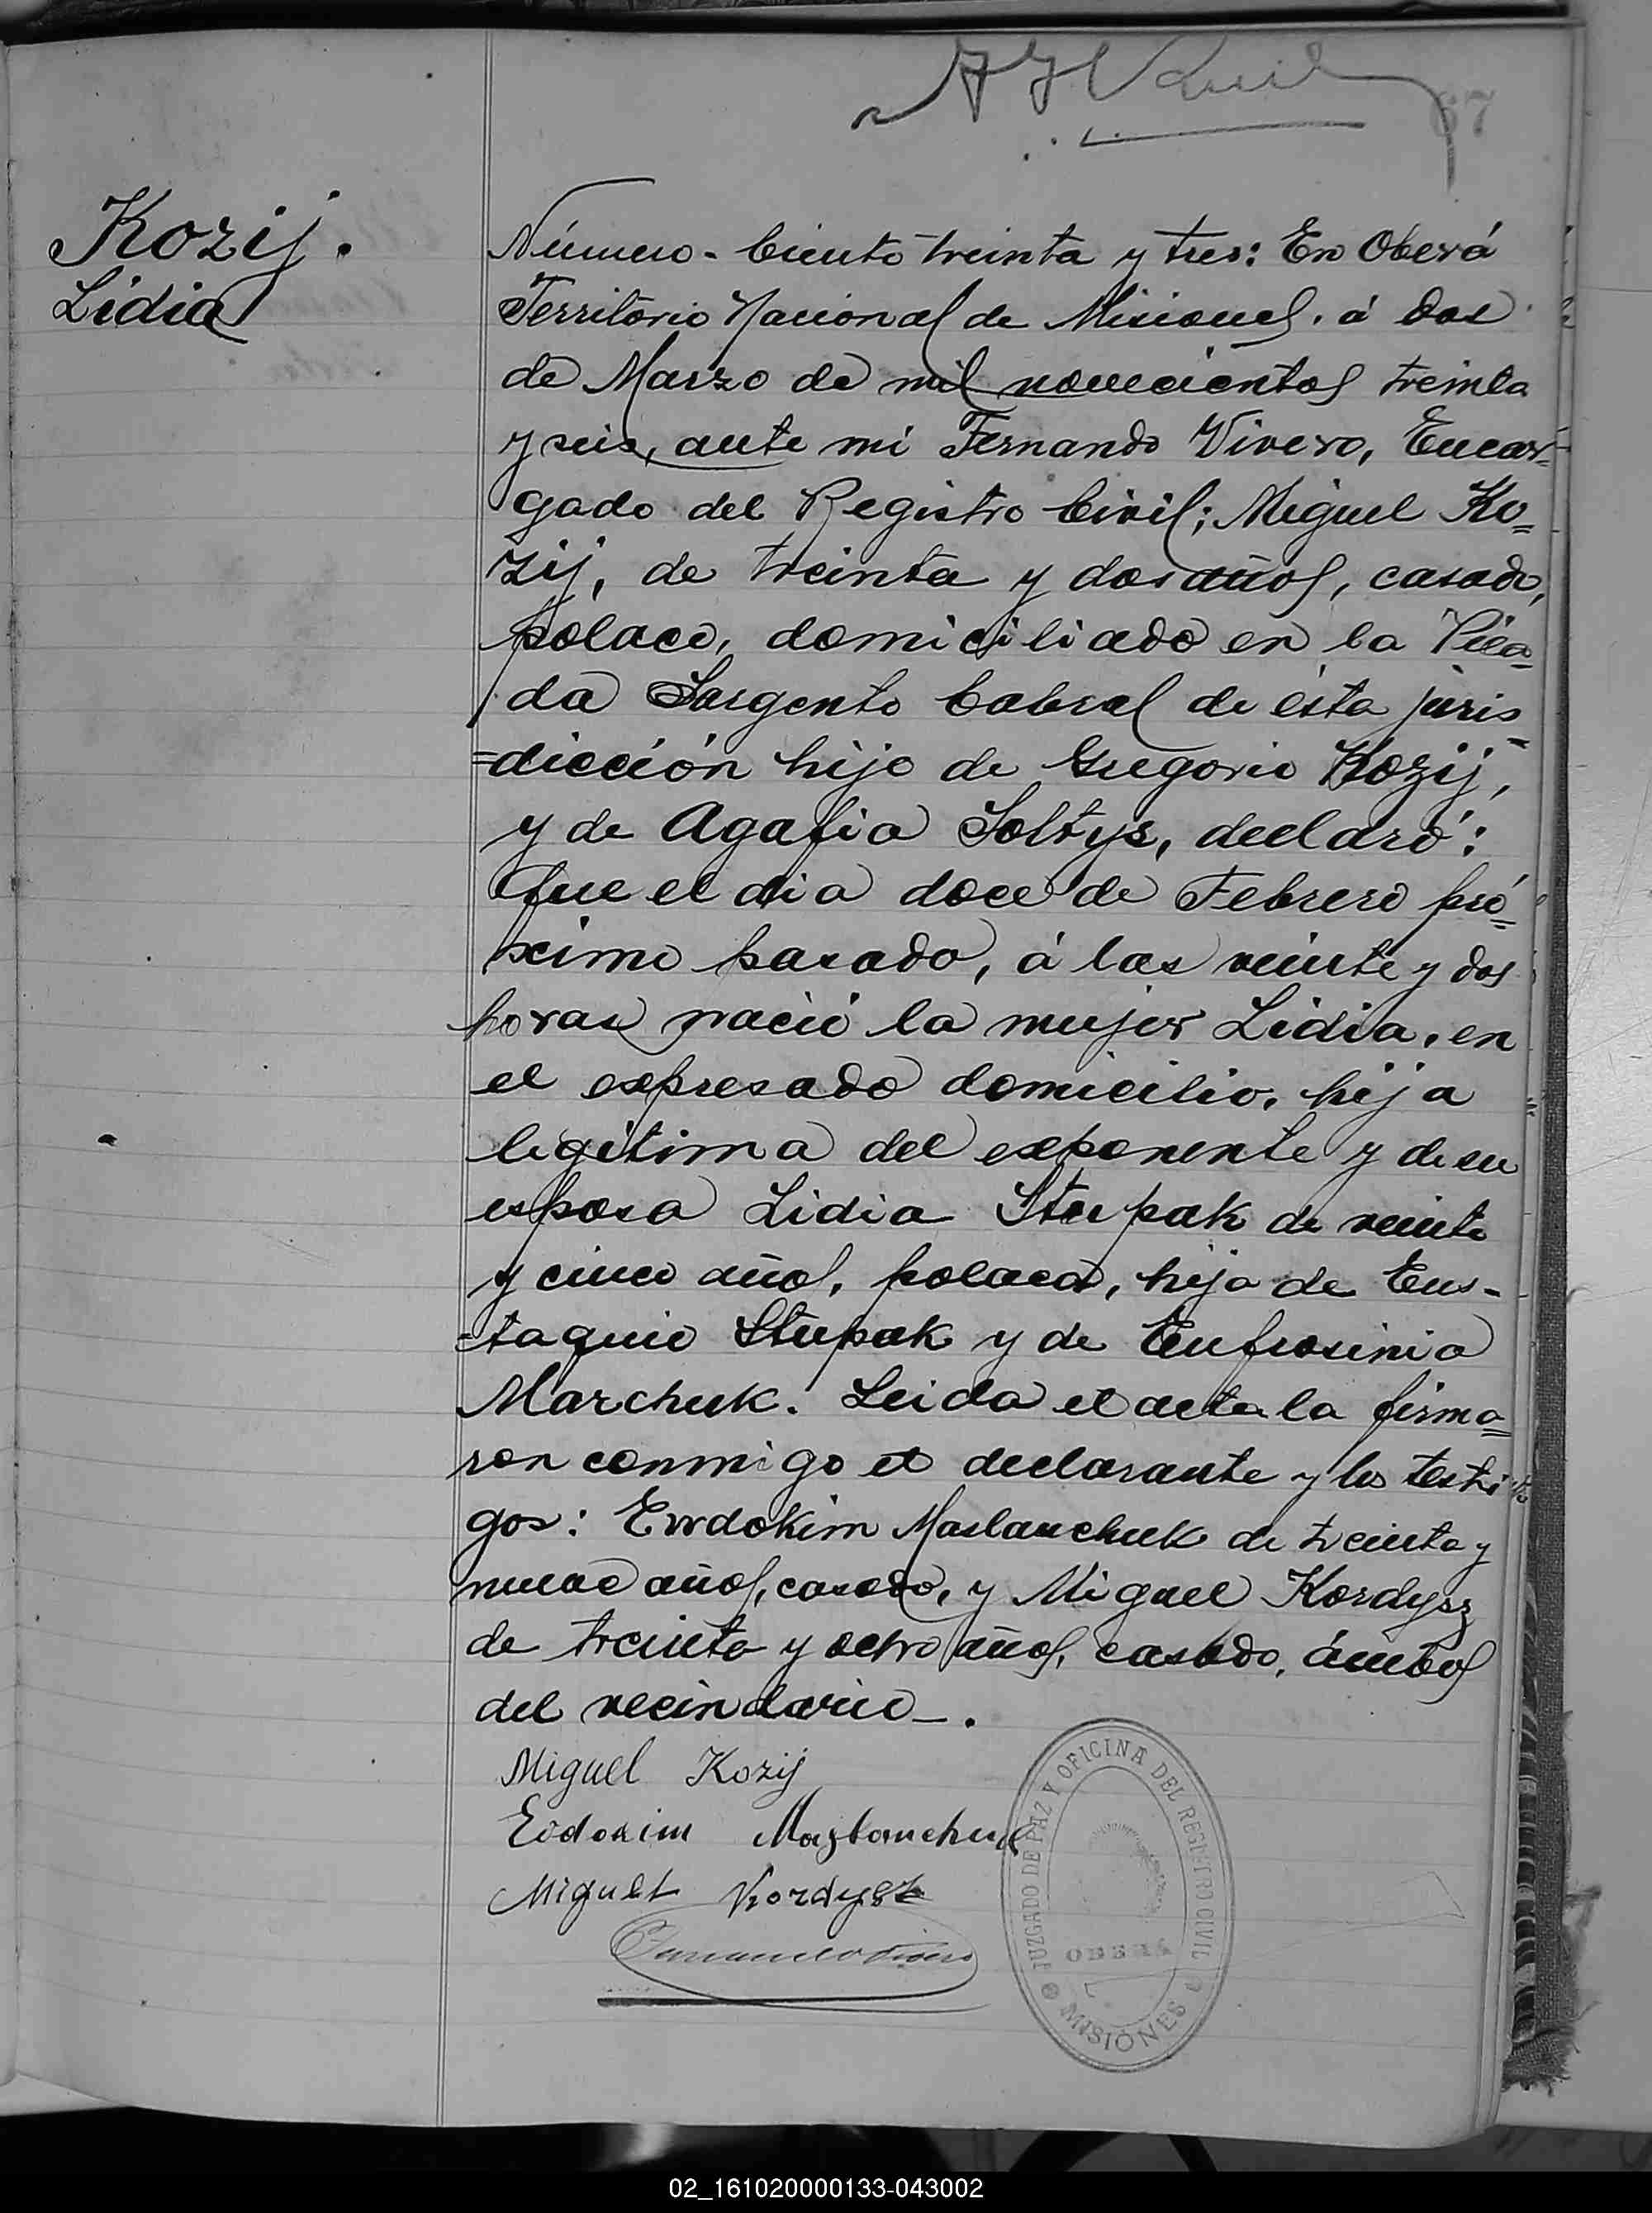 67
Kozij.
Lidia
Número - Ciento treinta y tres: En Oberá
Territorio Nacional de Misiones. á dos
de Marzo de mil novecientos treinta
y seis, ante mi Fernando Vivero, Encar-
gado del Registro Civil; Miguel Ko=
zij, de treinta y dos años, casado,
polaco, domiciliado en la Pica=
da Sargento Cabral de ésta juris
=dicción hijo de Gregorio Kozij,
y de Agafia Soltys, declaró:
Que el dia doce de Febrero pró=
ximo pasado, á las veinte y dos
horas nació la mujer Lidia, en
el expresado domicilio, hija
legítima del exponente y de su
esposa Lidia Stupak de veinte
y cinco años, polaca, hija de Eus-
-taquio Stupak y de Eufrosinia
Marchuk. Leida el acta la firma=
ron conmigo el declarante y los testi
gos: Ewdokim Maslanchuk de treinta y
nueve años, casado, y Miguel Kordysz
de treinta y ocho años, casado, ámbos
del vecindario_.
Miguel Kozij
Eodokim Maslanchuk
Miguel Kordysz
Fernando Vivero
JUZGADO DE PAZ Y OFICINA DEL REGISTRO CIVIL
OBERÁ
MISIONES
02_161020000133-043002